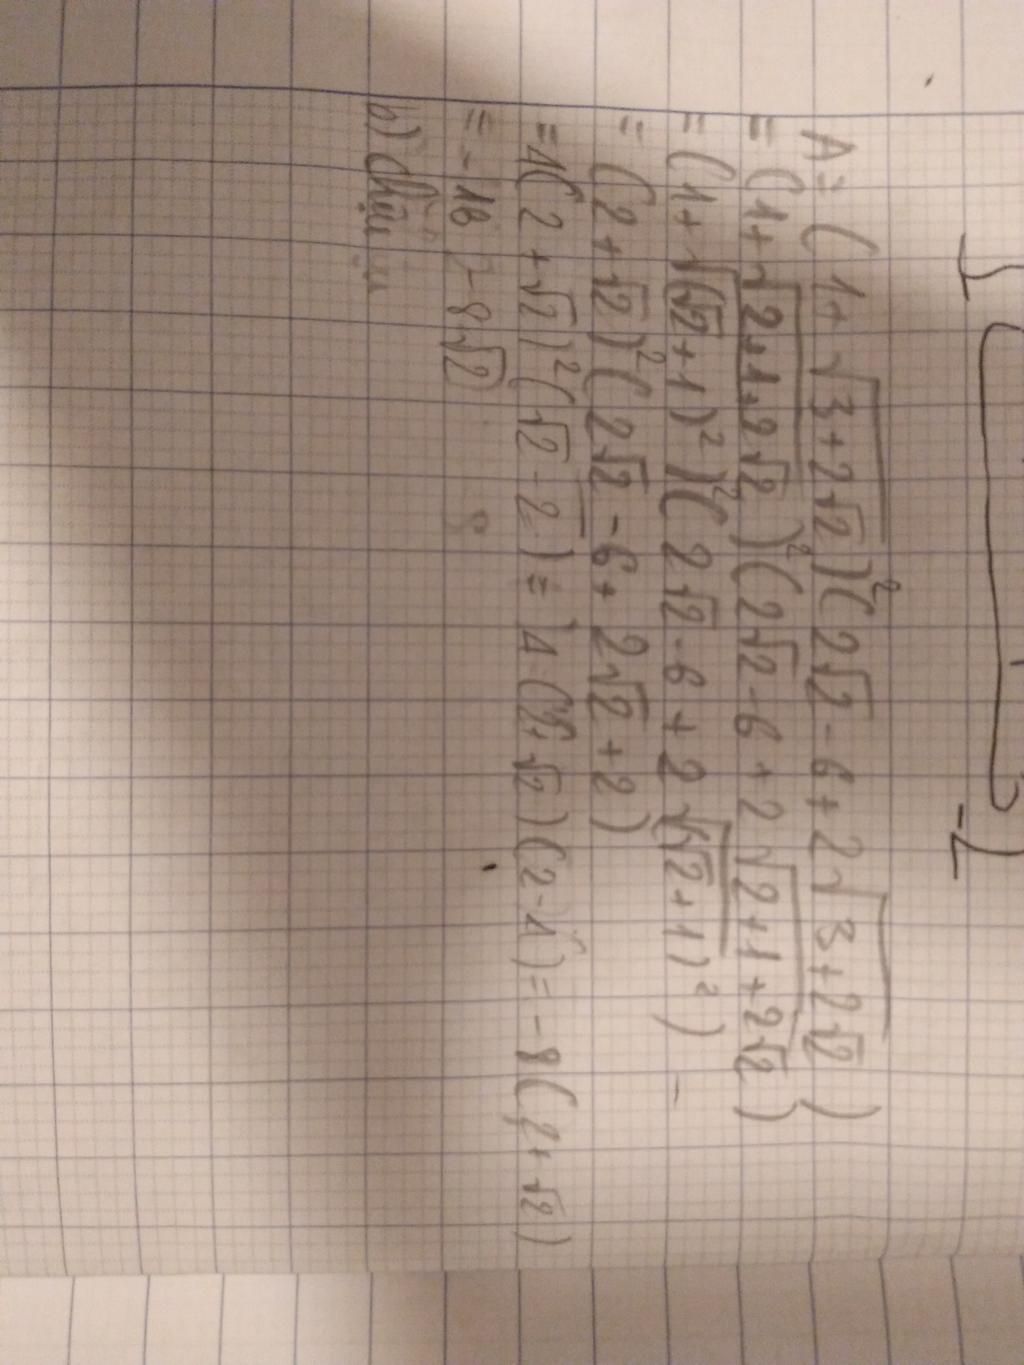 A = (1 + √(3+2√2))²(2√2 - 6 + 2√(3+2√2))
= (1 + √(2+1+2√2))²(2√2 - 6 + 2√(2+1+2√2))
= (1 + √((√2+1)²))²(2√2 - 6 + 2√((√2+1)²)) -
= (2 + √2)²(2√2 - 6 + 2√2 + 2)
= 4(2 + √2)²(√2 - 2) = 4(√2)(2-4) = -8(2 + √2)
= -16 - 8√2
b)